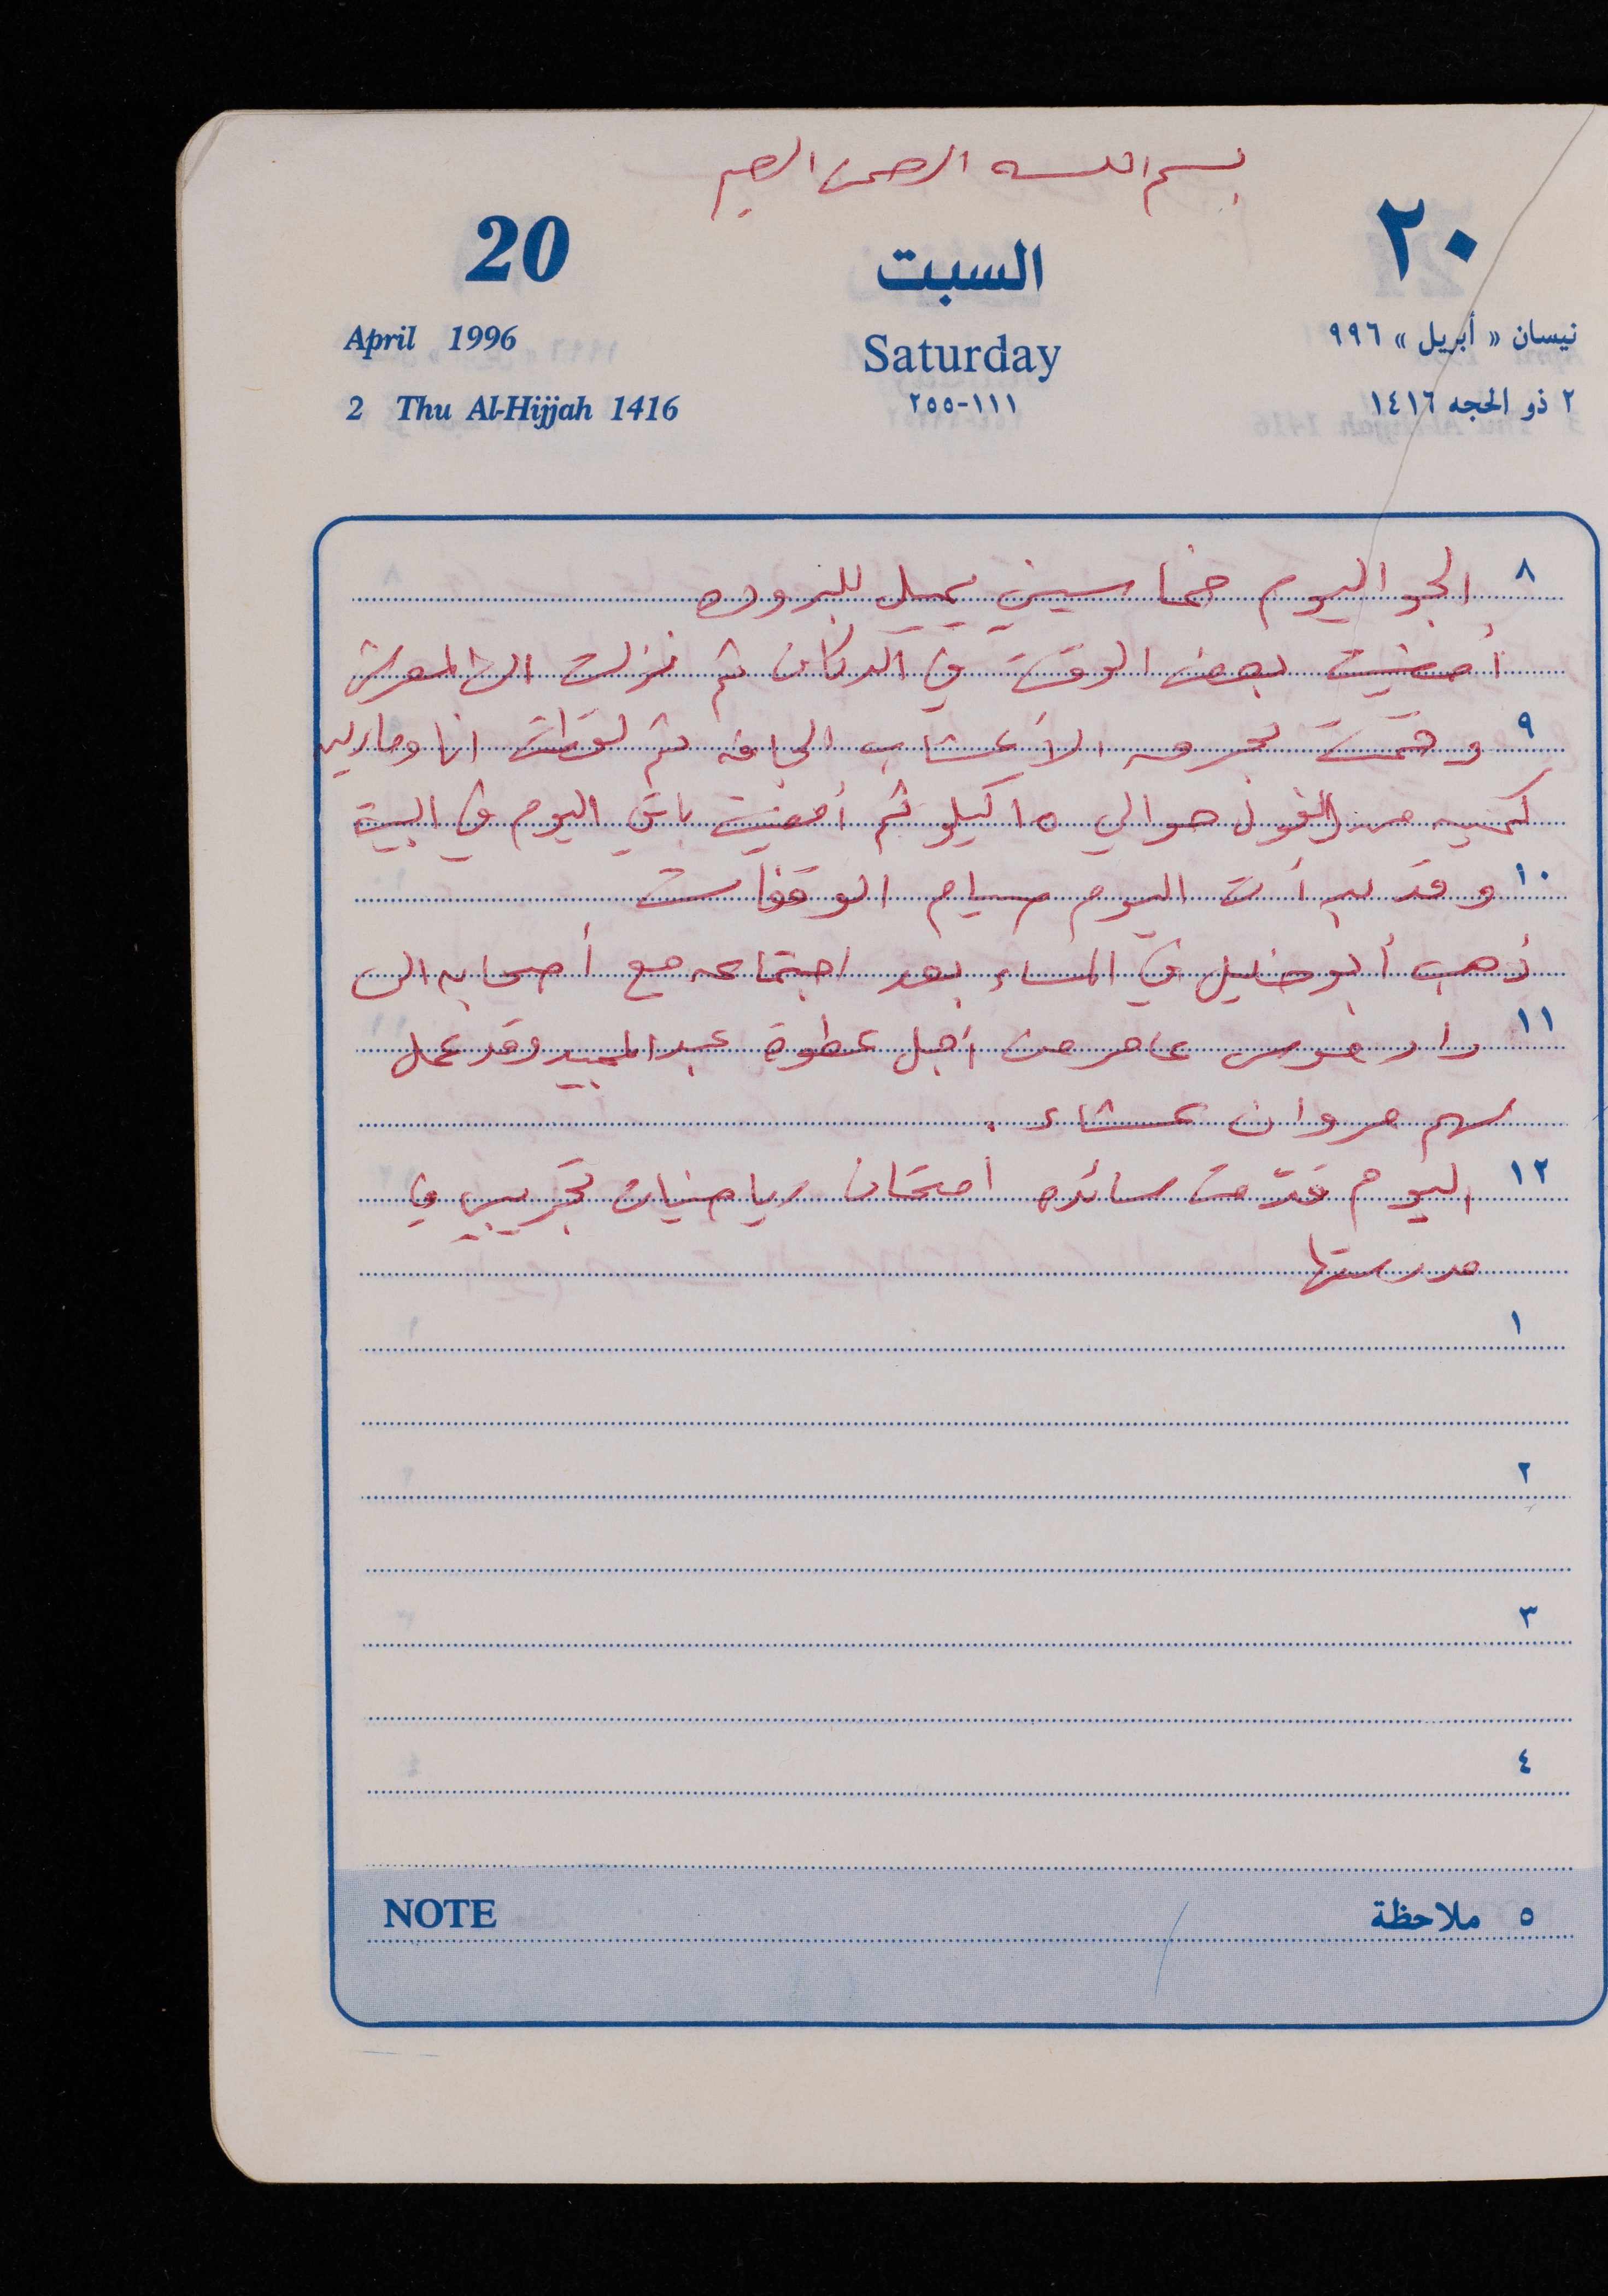 بسم الله الرحمن الرحيم
20 السبت ٢٠
April 1996 Saturday نيسان « أبريل » ٩٩٦
2 Thu Al-Hijjah 1416 ٢٥٥-١١١ ٢ ذو الحجه ١٤١٦
٨ الجو اليوم خماسيني يميل للبروده
أمضيت بعض الوقت في الدكان ثم نزلت الى المعرش
٩ وقمت بحرق الأعشاب الجافه ثم لقطت انا وماريا
كميه من الفول حوالي ١٥ كيلو ثم أمضيت باقي اليوم في البيت
١٠ وقد بدأت اليوم صيام الوقفات
ذهب أبو خليل في المساء بعد اجتماعه مع أصحابه الى
١١ دار موسى عامر من أجل عطوة عبد المجيد وقد عمل
لهم مروان عشاء .
١٢ اليوم قدّمت سائده امتحان رياضيات تجريبي في
مدرستها
١
٢
٣
٤
NOTE ٥ ملاحظة